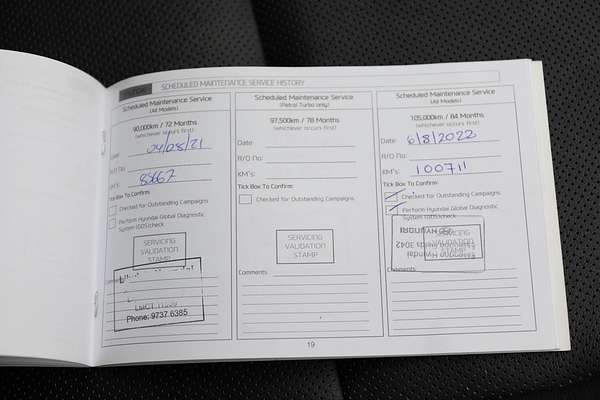 SCHEDULED MAINTENANCE SERVICE HISTORY
Scheduled Maintenance Service
(All Models)
90,000km / 72 Months
(whichever occurs first)
Date: 04/08/21
R/O No:
KM's:
Tick Box To Confirm:
Checked for Outstanding Campaigns
Perform Hyundai Global Diagnostic
System (GDS)check
SERVICING
VALIDATION
STAMP
Comments:
LMCT
Phone: 9737.6385
Scheduled Maintenance Service
(Petrol Turbo only)
97,500km / 78 Months
(whichever occurs first)
Date:
R/O No:
KM's:
Tick Box To Confirm:
Checked for Outstanding Campaigns
SERVICING
VALIDATION
STAMP
Comments:
Scheduled Maintenance Service
(All Models)
105,000km / 84 Months
(whichever occurs first)
Date: 6/8/2022
R/O No:
KM's: 100711
Tick Box To Confirm:
Checked for Outstanding Campaigns
Perform Hyundai Global Diagnostic
System (GDS)check
SERVICING
VALIDATION
STAMP
Comments:
19